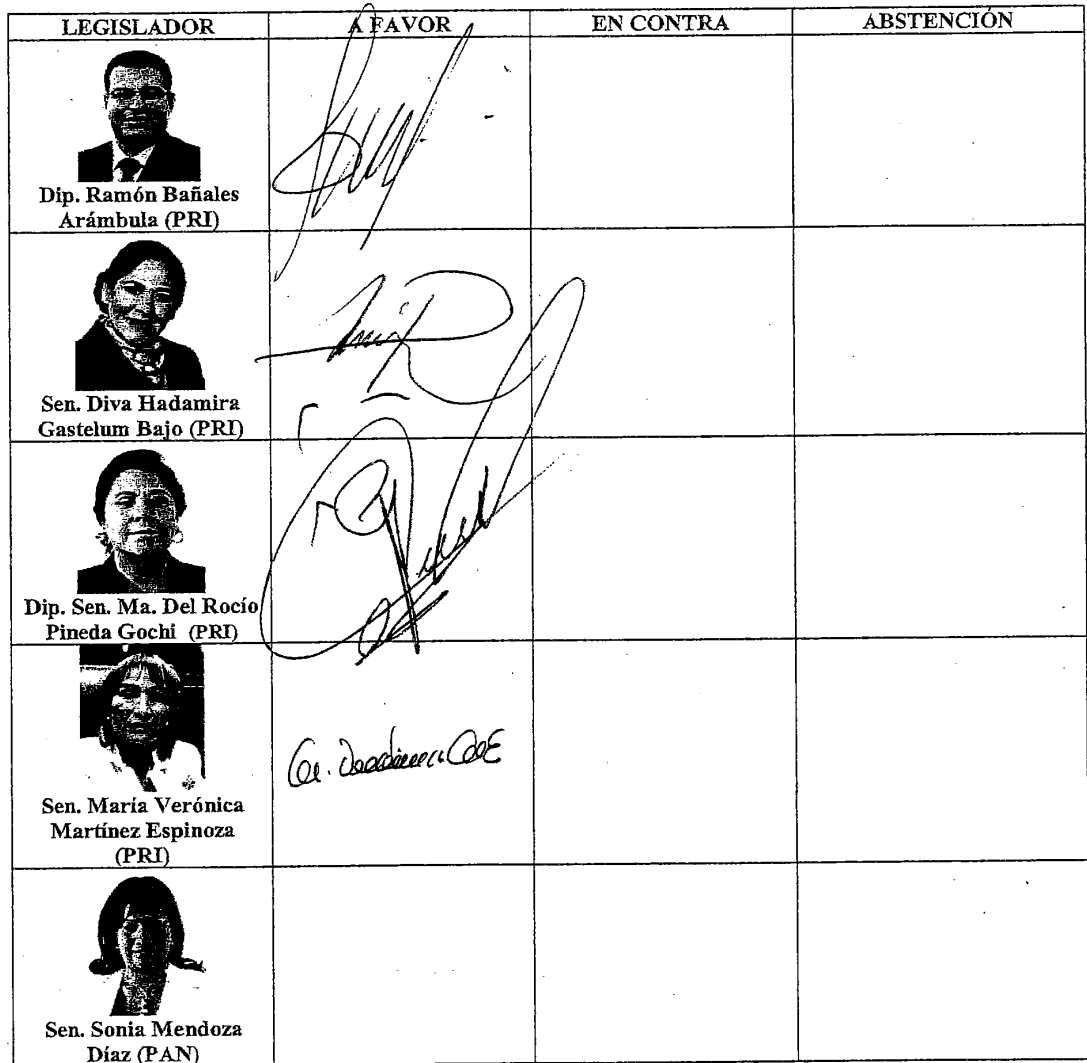 LEGISLADOR A FAVOR EN CONTRA ABSTENCIÓN
Dip. Ramón Bañales
Arámbula (PRI)
Sen. Diva Hadamira
Gastelum Bajo (PRI)
Dip. Sen. Ma. Del Rocío
Pineda Gochi (PRI)
Sen. María Verónica
Martínez Espinoza
(PRI)
Sen. Sonia Mendoza
Díaz (PAN)